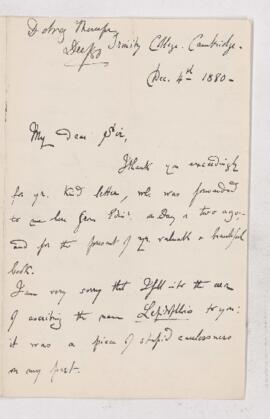 Trinity College. Cambridge.
Dec. 4th 1880.
My dear Sir,
Thank you exceedingly
for yr. kind letter, wh. was forwarded
to me here from Edinr. a day or two ago,
and for the present of yr. valuable & beautiful
book.
I am very sorry that I fell into the error
of ascribing the name to you:
it was a piece of stupid carelessness
on my part.